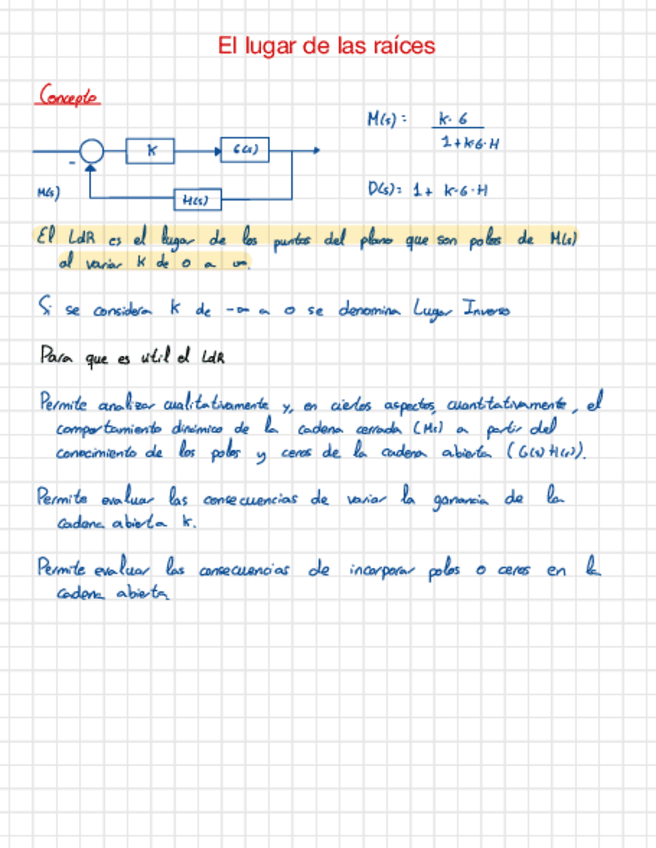 El lugar de las raíces
Concepto
M(s) = K·G / 1+K·G·H
K
G(s)
-
M(s)
H(s)
D(s) = 1+ K·G·H
El LdR es el lugar de los puntos del plano que son polos de M(s)
al variar K de 0 a ∞.
Si se considera K de -∞ a 0 se denomina Lugar Inverso
Para que es útil el LdR
Permite analizar cualitativamente y, en ciertos aspectos, cuantitativamente, el
comportamiento dinámico de la cadena cerrada (M(s)) a partir del
conocimiento de los polos y ceros de la cadena abierta (G(s)H(s)).
Permite evaluar las consecuencias de variar la ganancia de la
cadena abierta K.
Permite evaluar las consecuencias de incorporar polos o ceros en la
cadena abierta